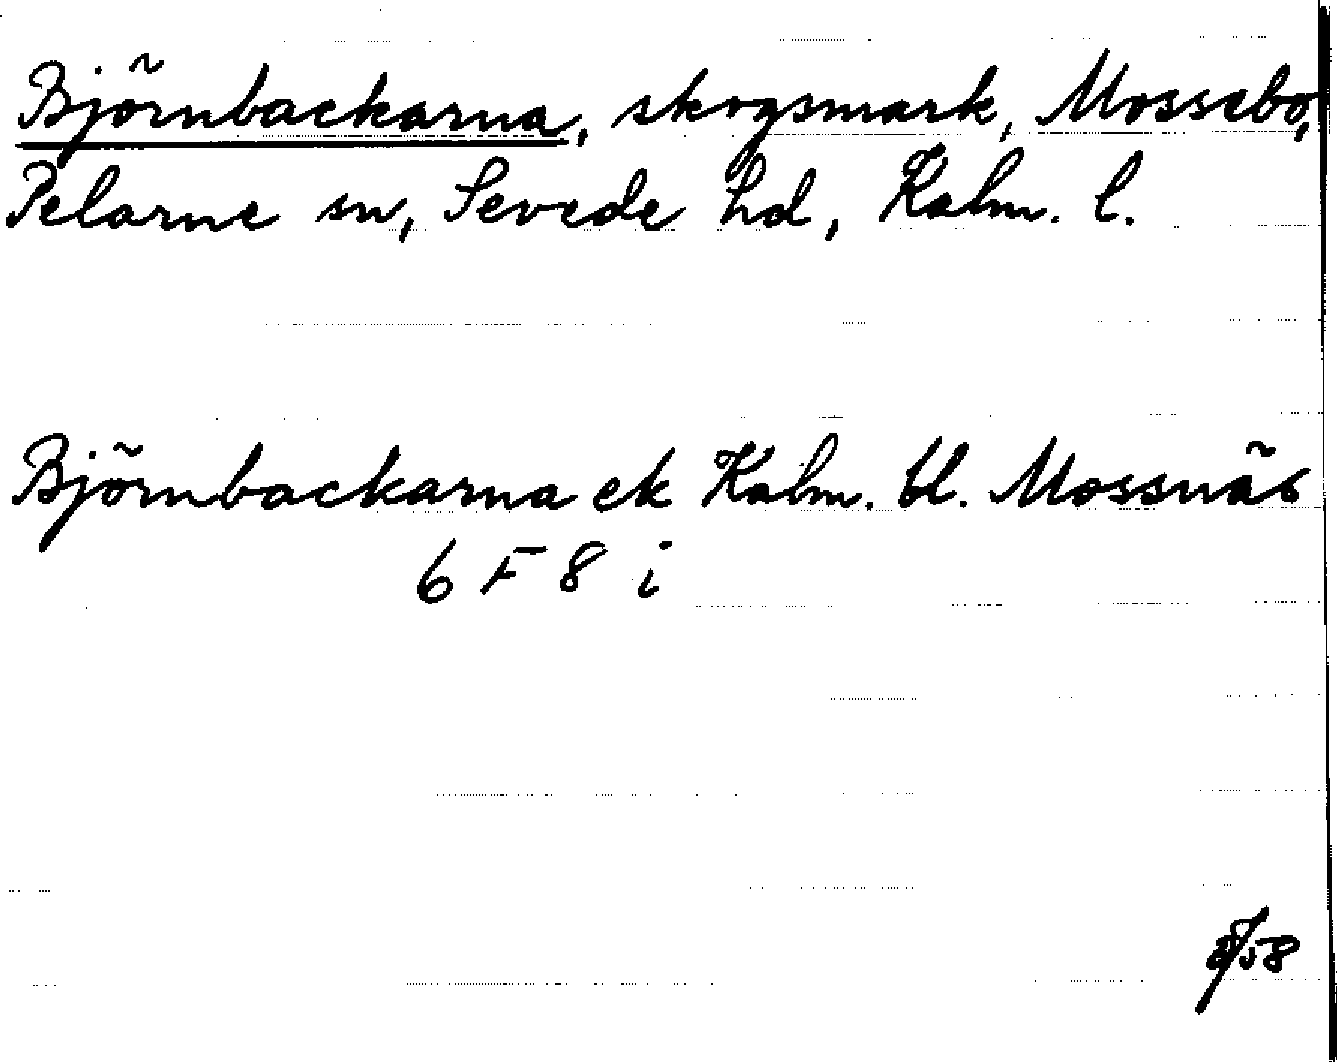 Björnbackarna, skogsmark, Mossebo,
Pelarne sn, Sevede hd, Kalm. l.
Björnbackarna ek Kalm. bl. Mossnäs
6 F 8 i